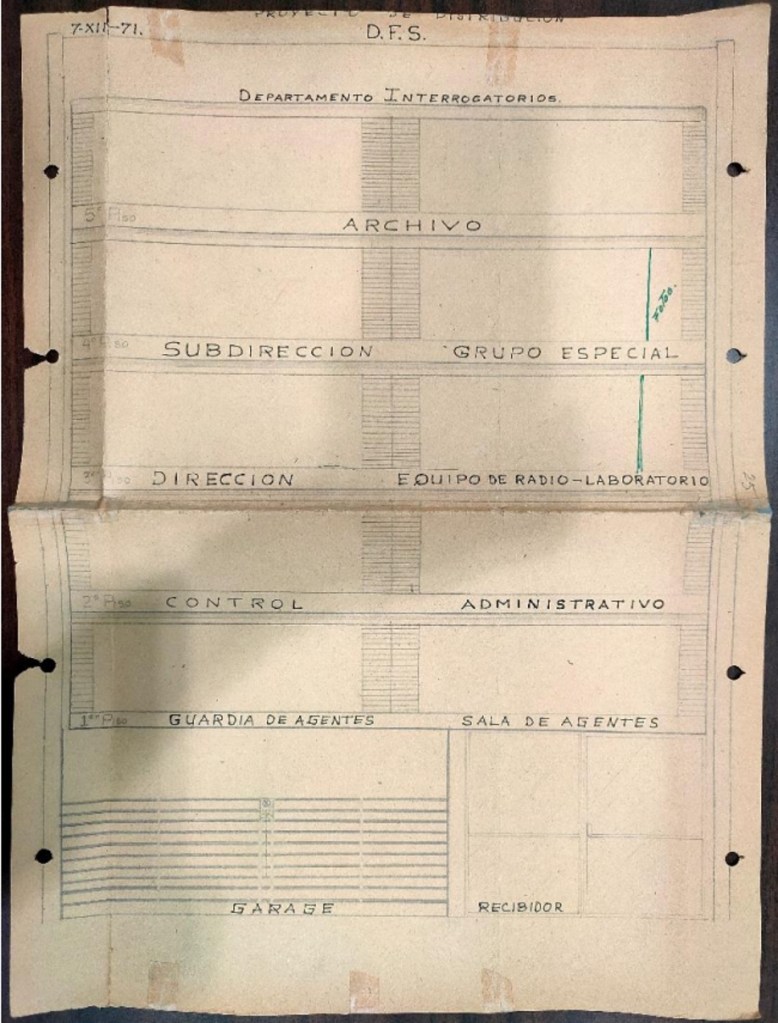 PROYECTO DE DISTRIBUCION
7-XII-71.
D.F.S.
DEPARTAMENTO INTERROGATORIOS.
5º Piso
ARCHIVO
Fotos.
4º Piso SUBDIRECCION GRUPO ESPECIAL
3º Piso DIRECCION EQUIPO DE RADIO-LABORATORIO
25
2º Piso CONTROL ADMINISTRATIVO
1er Piso GUARDIA DE AGENTES SALA DE AGENTES
GARAGE RECIBIDOR